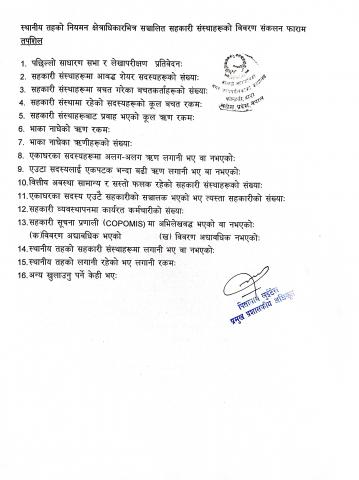 स्थानीय तहको नियमन क्षेत्राधिकारभित्र सञ्चालित सहकारी संस्थाहरूको विवरण संकलन फाराम
तपशिल
1. पछिल्लो साधारण सभा र लेखापरीक्षण प्रतिवेदनः
2. सहकारी संस्थाहरूमा आवद्ध शेयर सदस्यहरूको संख्याः
3. सहकारी संस्थाहरूमा बचत गरेका बचतकर्ताहरूको संख्याः
4. सहकारी संस्थामा रहेको सदस्यहरूको कूल बचत रकमः
5. सहकारी संस्थाहरूबाट प्रवाह भएको कूल ऋण रकमः
6. भाका नाघेको ऋण रकमः
7. भाका नाघेका ऋणीहरूको संख्याः
8. एकाघरका सदस्यहरूमा अलग-अलग ऋण लगानी भए वा नभएकोः
9. एउटा सदस्यलाई एकपटक भन्दा बढी ऋण लगानी भए वा नभएकोः
10. वित्तीय अवस्था सामान्य र सस्तो फलक रहेको सहकारी संस्थाहरूको संख्याः
11. एकाघरका सदस्य एउटै सहकारीको सञ्चालक भएको भए त्यस्ता सहकारीको संख्याः
12. सहकारी व्यवस्थापनमा कार्यरत कर्मचारीको संख्याः
13. सहकारी सूचना प्रणाली (COPOMIS) मा अभिलेखबद्ध भएको वा नभएकोः
(क) विवरण अद्यावधिक भएको (ख) विवरण अद्यावधिक नभएकोः
14. स्थानीय तहको सहकारी संस्थाहरूमा लगानी भए वा नभएकोः
15. स्थानीय तहको लगानी रहेको भए लगानी रकमः
16. अन्य खुलाउनु पर्ने केही भएः
प्रमुख प्रशासकीय अधिकृत